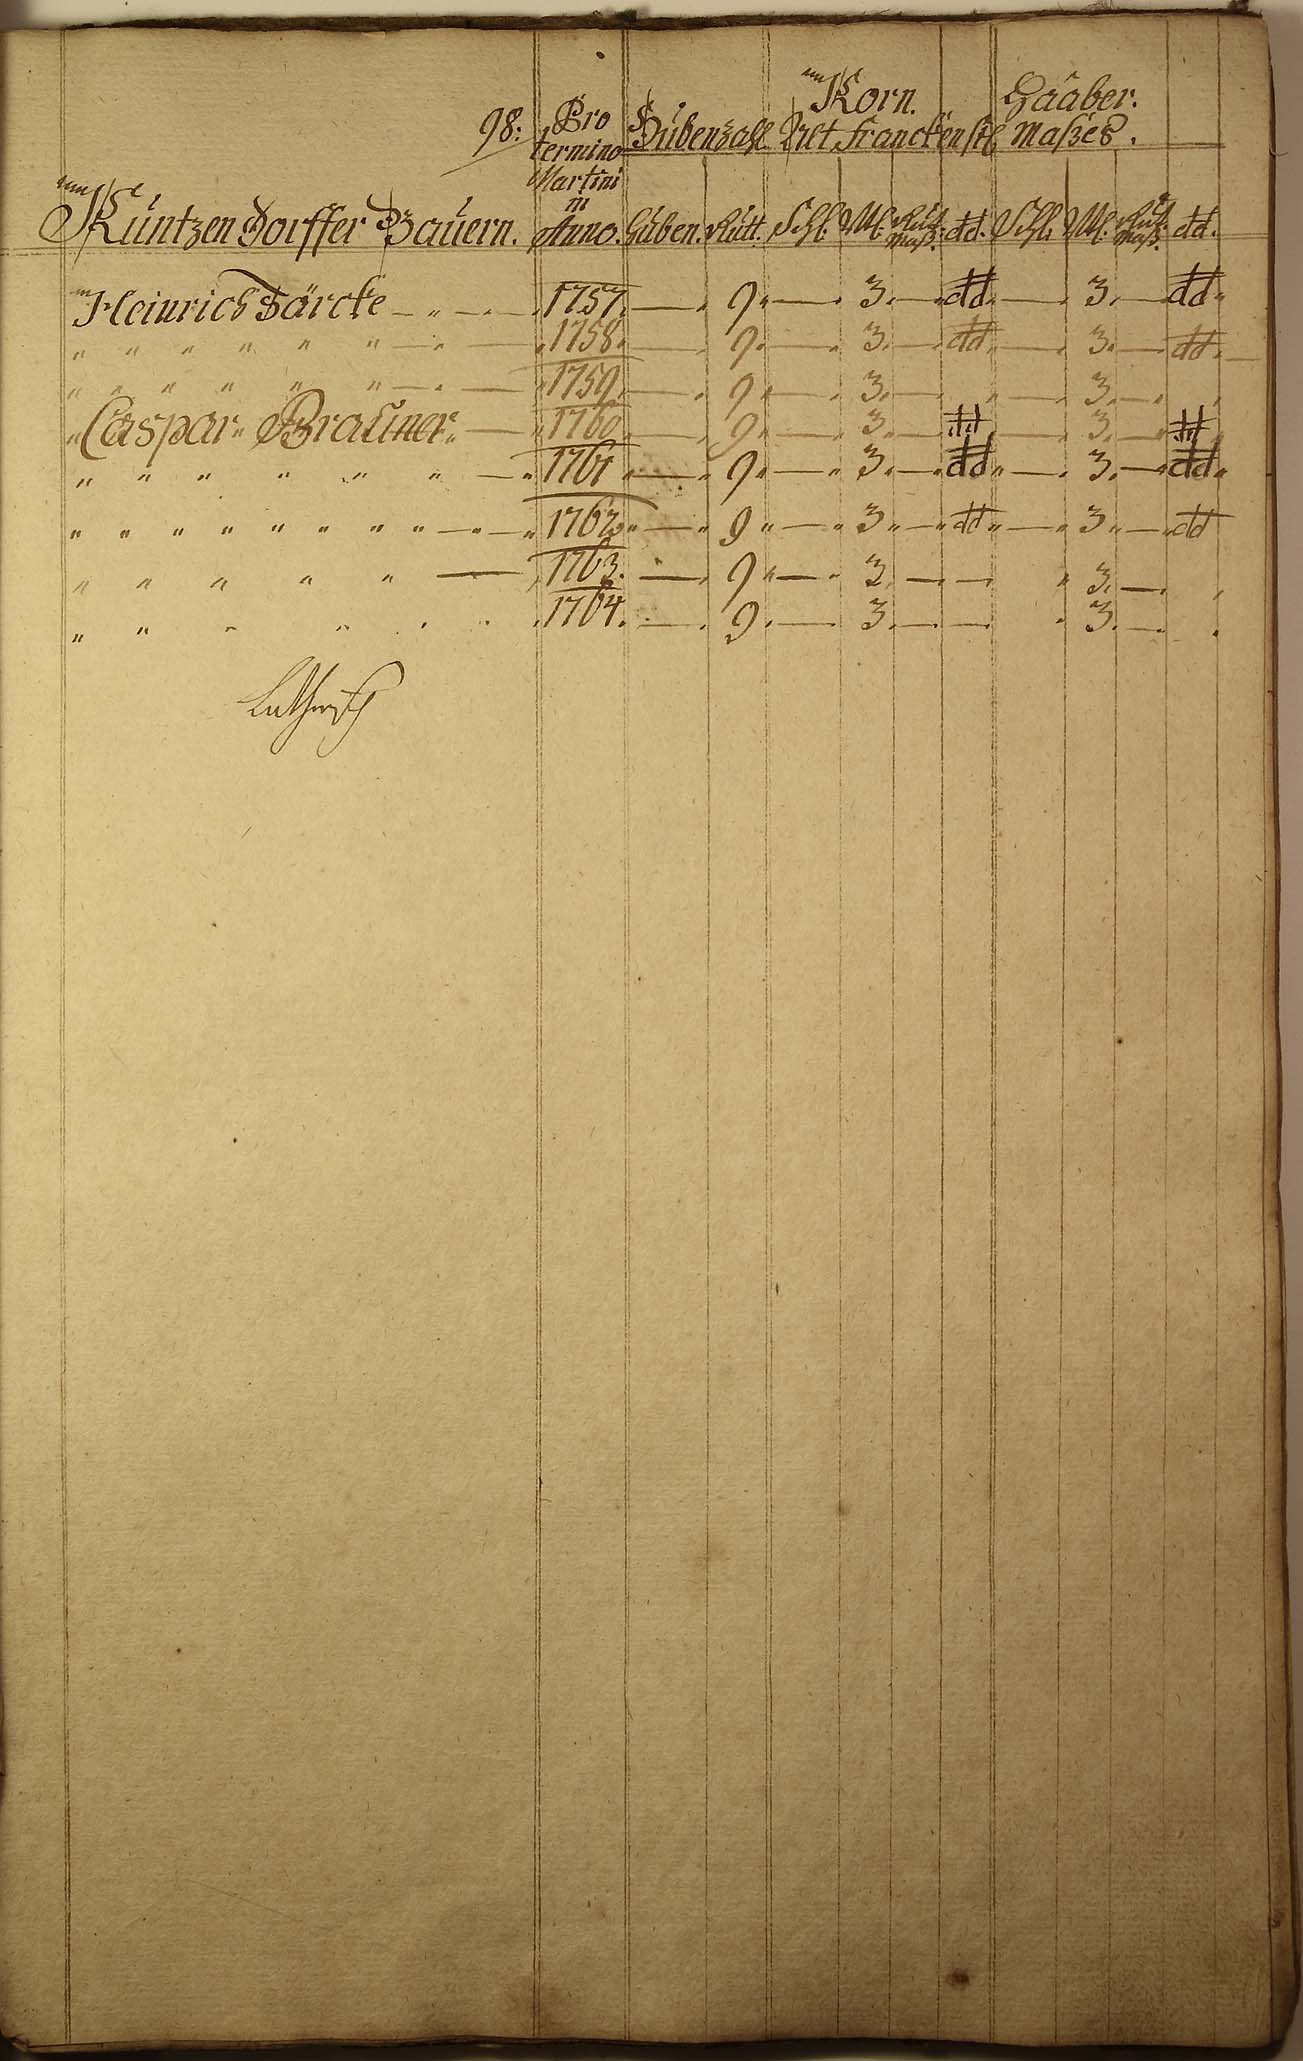 98. Pro Korn. Haaber.
termino Hubenzahl Alt Franckenst: Maßes.
Martini
in
Kuntzendorffer Bauern. Anno. Huben. Rutt. Schl. Ml. Maß. dd. Schl. Ml. Maß. dd.
Heinrich Färcke — " — 1757. — 9 " — 3. — dd. — 3. — dd "
" " " " " " — " — " 1758. — 9. — 3. — dd. — 3. — dd.
" " " " " " — " — " 1759. — 9 " — 3. — 3. —
" Caspar Brauner " — " 1760 — 9 " — 3. — dd — 3. — dd
" " " " " " — " 1761 " — 9 " — " 3. — dd " — 3. — dd "
" " " " " " " " " — " — " 1762 " — " 9 " — " 3 " — " dd " — " 3 " — dd
" " " " " — 1763. — 9 " — " 3. — — " 3. —
" " " " " " 1764. — 9. — 3. — — 3. —